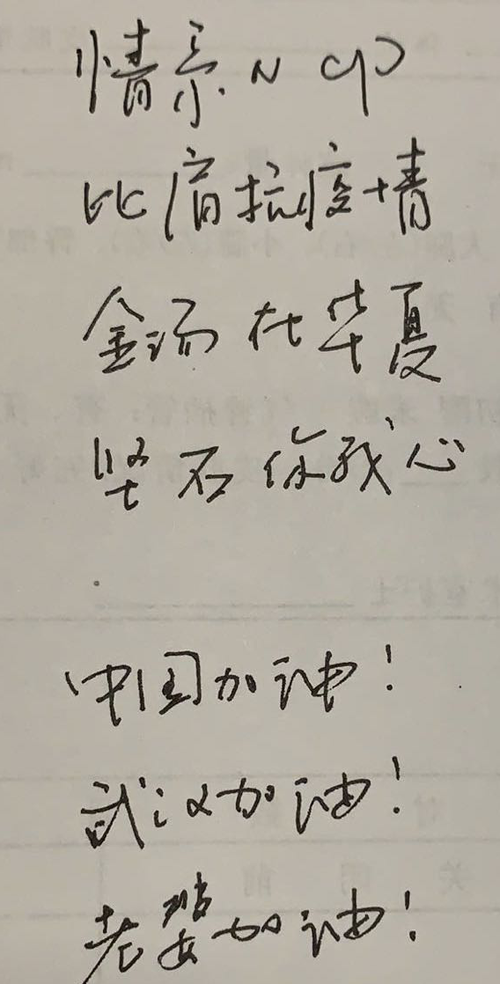 情系NCP
比肩抗疫情
金汤在华夏
坚石你我心
中国加油！
武汉加油！
老婆加油！